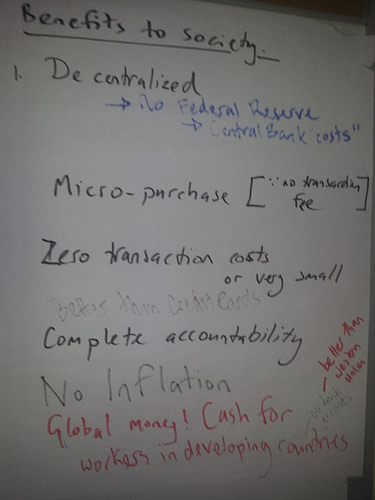 Benefits to society.
1. Decentralized
→ No Federal Reserve
→ Central Bank "costs"
Micro-purchase [∵ no transaction
fee]
Zero transaction costs
or very small
Better than Credit Cards
Complete accountability
No Inflation
Global money! Cash for
workers in developing countries
no bank
accounts
better than
western
union